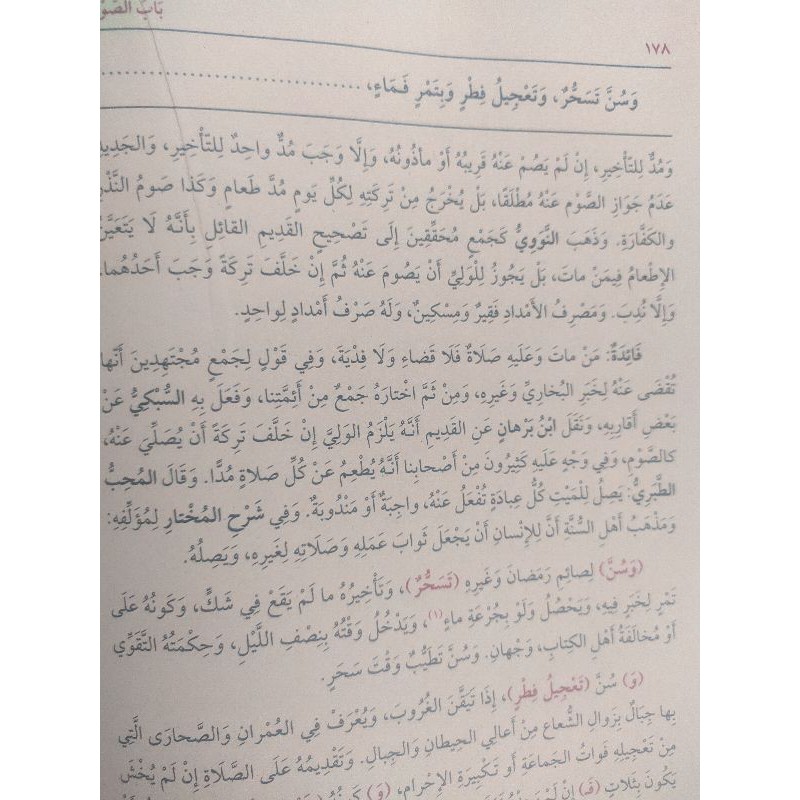 بَابُ الصَّوْ
١٧٨
وَسُنَّ تَسَحُّرٌ، وَتَعْجِيلُ فِطْرٍ وَبِتَمْرٍ فَمَاءٍ، ........................
وَمُدٌّ لِلتَّأْخِيرِ، إِنْ لَمْ يَصُمْ عَنْهُ قَرِيبُهُ أَوْ مأذُونُهُ، وَإِلَّا وَجَبَ مُدٌّ واحِدٌ لِلتَّأْخِيرِ، وَالجَدِيد
عَدَمُ جَوَازِ الصَّوْم عَنْهُ مُطْلَقًا، بَلْ يُخْرَجُ مِنْ تَرِكَتِهِ لِكُلِّ يَومٍ مُدَّ طَعامٍ وَكَذا صَومُ النَّذْرِ
والكَفَّارَةِ. وَذَهَبَ النَّوَوِيُّ كَجَمْعٍ مُحَقِّقِينَ إِلَى تَصْحِيحِ القَدِيمِ القائِلِ بِأَنَّهُ لَا يَتَعَيَّنُ
الإِطْعامُ فِيمَنْ ماتَ، بَلْ يَجُوزُ لِلْوَلِيِّ أَنْ يَصُومَ عَنْهُ ثُمَّ إِنْ خَلَّفَ تَرِكَةً وَجَبَ أَحَدُهُما.
وَإِلَّا نُدِبَ. وَمَصْرِفُ الأَمْدادِ فَقِيرٌ وَمِسْكِينٌ، وَلَهُ صَرْفُ أَمْدادٍ لِواحِدٍ.
فَائِدَةٌ: مَنْ ماتَ وَعَلَيهِ صَلَاةٌ فَلَا قضاءَ وَلَا فِدْيَةَ، وَفِي قَوْلٍ لِجَمْعٍ مُجْتَهِدِينَ أَنَّها
تُقْضَى عَنْهُ لِخَبَرِ البُخارِيِّ وَغَيرِهِ، وَمِنْ ثَمَّ اخْتارَهُ جَمْعٌ مِنْ أَئِمَّتِنا، وَفَعَلَ بِهِ السُّبْكِيُّ عَنْ
بَعْضِ أَقارِبِهِ، وَنَقَلَ ابْنُ بَرْهانٍ عَنِ القَدِيمِ أَنَّهُ يَلْزَمُ الوَلِيَّ إِنْ خَلَّفَ تَرِكَةً أَنْ يُصَلِّيَ عَنْهُ،
كالصَّوْمِ، وَفِي وَجْهٍ عَلَيهِ كَثِيرُونَ مِنْ أَصْحابِنا أَنَّهُ يُطْعِمُ عَنْ كُلِّ صَلاةٍ مُدًّا. وَقَالَ المُحِبُّ
الطَّبَرِيُّ: يَصِلُ لِلْمَيْتِ كُلُّ عِبادَةٍ تُفْعَلُ عَنْهُ، واجِبَةٌ أَوْ مَنْدُوبَةٌ. وَفِي شَرْحِ المُخْتارِ لِمُؤَلِّفِهِ:
وَمَذْهَبُ أَهْلِ السُّنَّةِ أَنَّ لِلإِنْسانِ أَنْ يَجْعَلَ ثَوابَ عَمَلِهِ وَصَلَاتِهِ لِغَيرِهِ، وَيَصِلُهُ.
(وَسُنَّ) لِصائِمِ رَمَضانَ وَغَيرِهِ (تَسَحُّرٌ)، وَتَأْخِيرُهُ ما لَمْ يَقَعْ فِي شَكٍّ، وَكَونُهُ عَلَى
تَمْرٍ لِخَبَرٍ فِيهِ، وَيَحْصُلُ وَلَوْ بِجُرْعَةِ ماءٍ(١)، وَيَدْخُلُ وَقْتُهُ بِنِصْفِ اللَّيْلِ، وَحِكْمَتُهُ التَّقَوِّي
أَوْ مُخالَفَةُ أَهْلِ الكِتابِ، وَجْهانِ. وَسُنَّ تَطَيُّبٌ وَقْتَ سَحَرٍ.
(وَ) سُنَّ (تَعْجِيلُ فِطْرٍ)، إِذَا تَيَقَّنَ الغُرُوبَ، وَيُعْرَفُ فِي العُمْرانِ وَالصَّحارَى الَّتِي
بِها جِبَالٌ بِزَوالِ الشُّعاعِ مِنْ أَعالِي الحِيطانِ وَالجِبالِ. وَتَقْدِيمُهُ عَلَى الصَّلاةِ إِنْ لَمْ يُخْشَ
مِنْ تَعْجِيلِهِ فَواتُ الجَماعَةِ أَوْ تَكْبِيرَةِ الإِحْرامِ، (وَ) كَونُهُ
يَكُونَ بِثَلَاثٍ (فَـ) إِنْ لَمْ